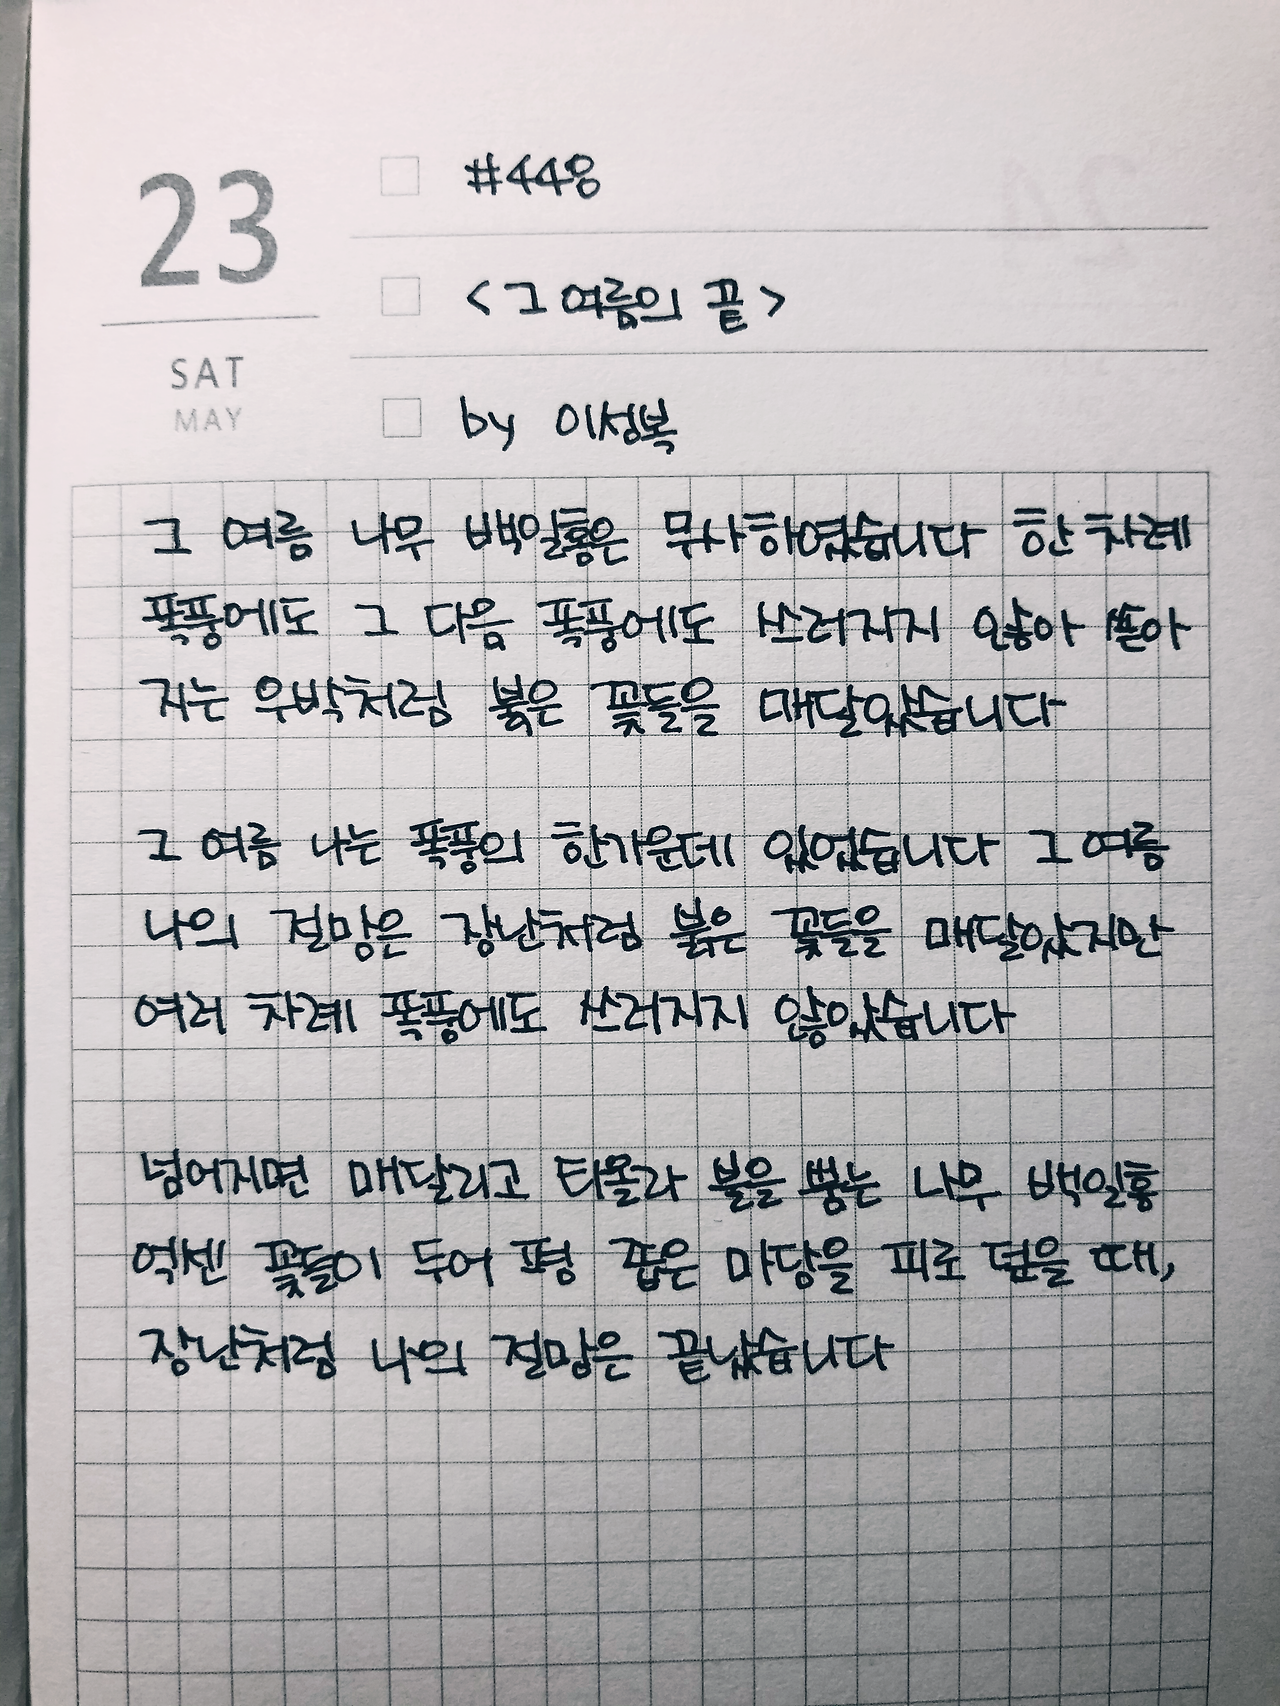 23
SAT
MAY
#448
<그 여름의 끝>
by 이성복
그 여름 나무 백일홍은 무사하였습니다 한 차례
폭풍에도 그 다음 폭풍에도 쓰러지지 않아 쏟아
지는 우박처럼 붉은 꽃들을 매달았습니다
그 여름 나는 폭풍의 한가운데 있었습니다 그 여름
나의 절망은 장난처럼 붉은 꽃들을 매달았지만
여러 차례 폭풍에도 쓰러지지 않았습니다
넘어지면 매달리고 타올라 불을 뿜는 나무 백일홍
억센 꽃들이 두어 평 좁은 마당을 피로 덮을 때,
장난처럼 나의 절망은 끝났습니다